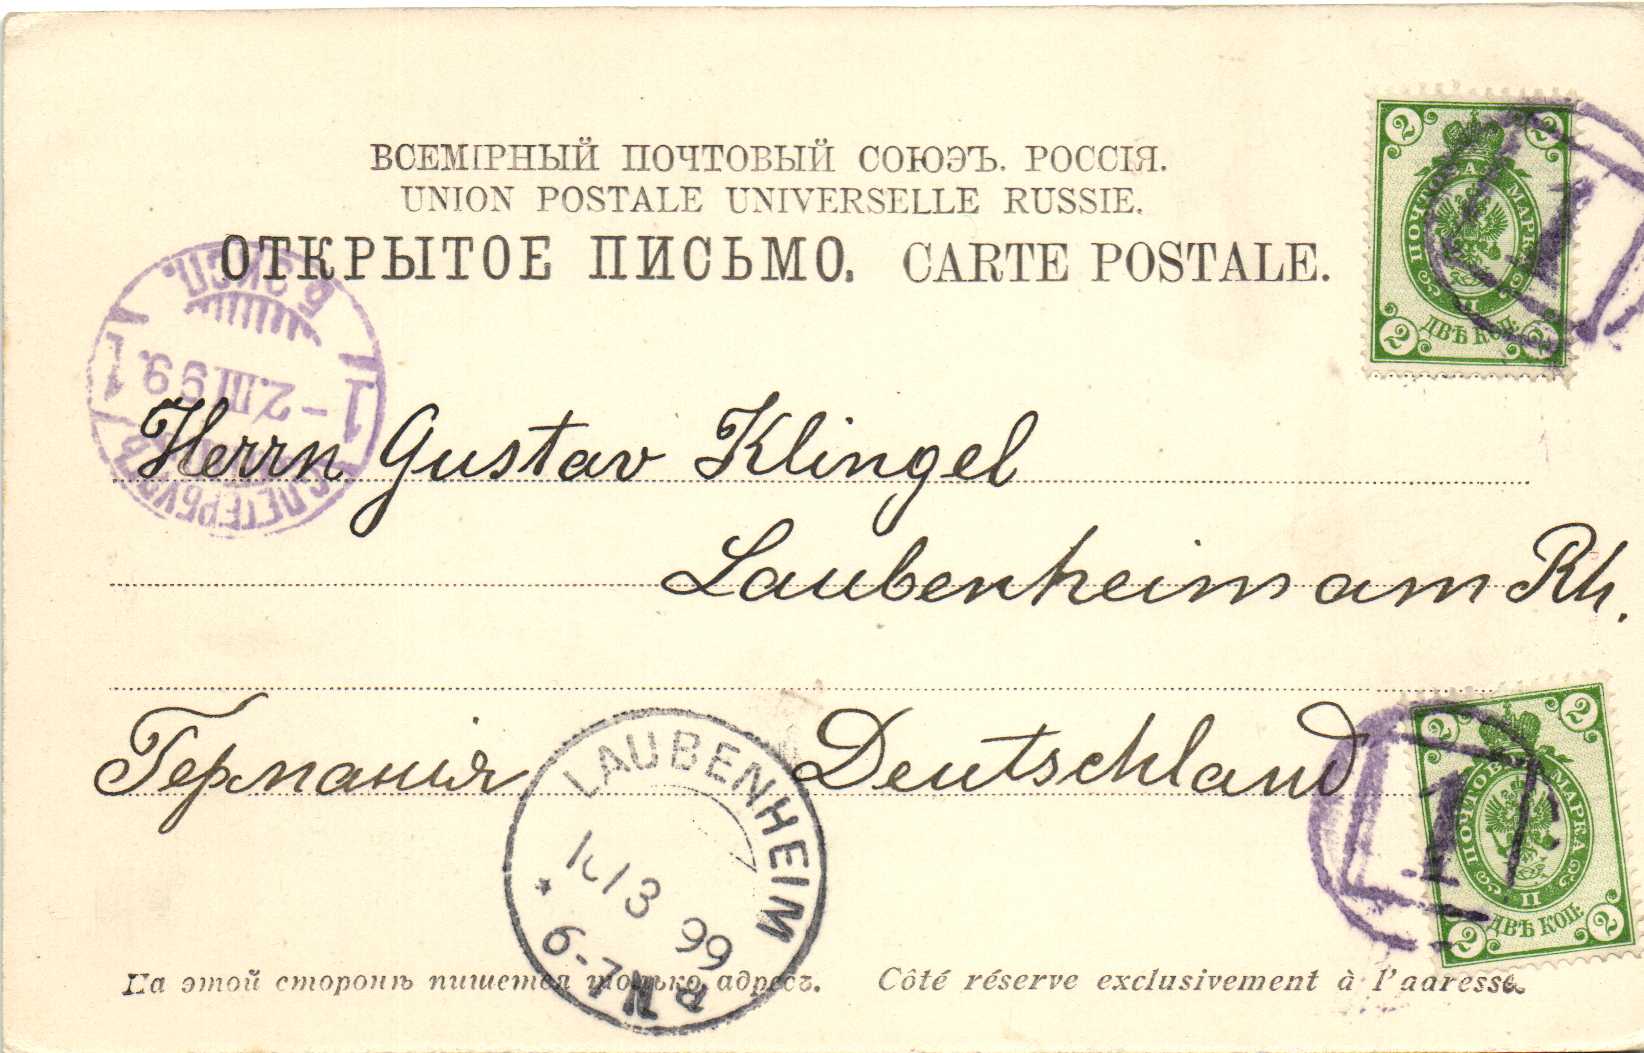 ВСЕМІРНЫЙ ПОЧТОВЫЙ СОЮЭЪ. РОССІЯ.
UNION POSTALE UNIVERSELLE RUSSIE.
ОТКРЫТОЕ ПИСЬМО. CARTE POSTALE.
2 2
ПОЧТОВАЯ МАРКА
ДВѢ КОП.
2 2
1
6 ЭКСП.
1 1
-2.III 99.
С.ПЕТЕРБУРГЪ
Herrn Gustav Klingel
Laubenheim am Rh.
Германия Deutschland
LAUBENHEIM
3 99
* 6-7 N
2 2
ПОЧТОВАЯ МАРКА
ДВѢ КОП.
2 2
1
На этой сторонѣ пишется только адресъ. Côté réserve exclusivement à l'aaresse.